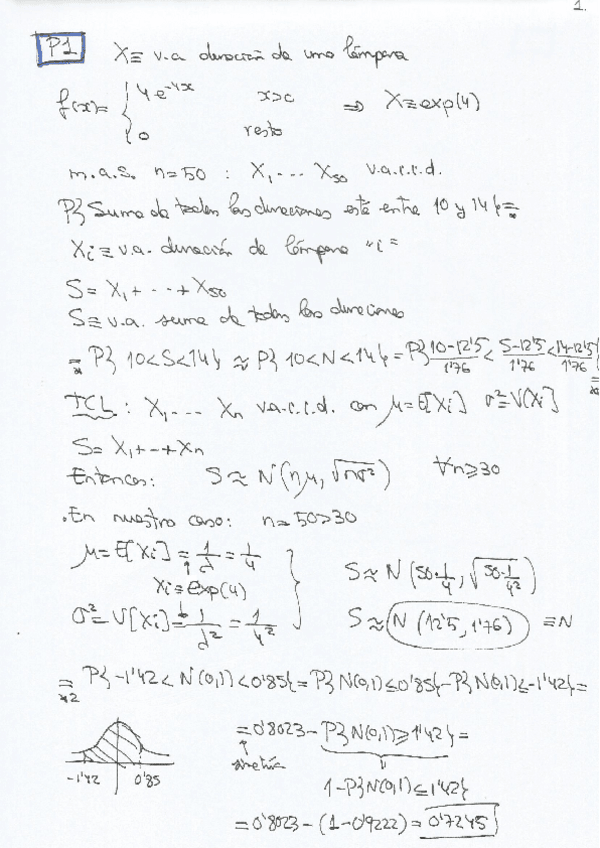 1.
P1 X≡ v.a duración de una lámpara
f(x)= { 4e^-4x x>0 ⇒ X≡exp(4)
0 resto
m.a.s. n=50 : X₁ ... X₅₀ v.a.i.i.d.
P{ Suma de todas las duraciones esté entre 10 y 14 } =*
Xi ≡ v.a. duración de lámpara "i"
S= X₁ + ... + X₅₀
S≡ v.a. suma de todas las duraciones
=* P{ 10<S<14 } ≈ P{ 10<N<14 } = P{ (10-12'5)/1'76 < (S-12'5)/1'76 < (14-12'5)/1'76 } =*2
TCL : X₁ ... Xn v.a.i.i.d. con μ=E[Xi] σ²=V(Xi)
S= X₁+...+Xn
Entonces: S≈ N(nμ, √nσ²) ∀n≥30
.En nuestro caso: n=50>30
μ=E[Xi] = 1/λ = 1/4
Xi≡exp(4)
S≈ N (50·1/4, √50·1/4²)
σ²=V[Xi] = 1/λ² = 1/4²
S≈ N (12'5, 1'76) ≡N
=*2 P{ -1'42 < N(0,1) < 0'85 } = P{ N(0,1) ≤ 0'85 } - P{ N(0,1) ≤ -1'42 } =
-1'42 0'85
= 0'8023 - P{ N(0,1) ≥ 1'42 } =
simetría
1-P{ N(0,1) ≤ 1'42 }
= 0'8023 - (1-0'9222) = 0'7245